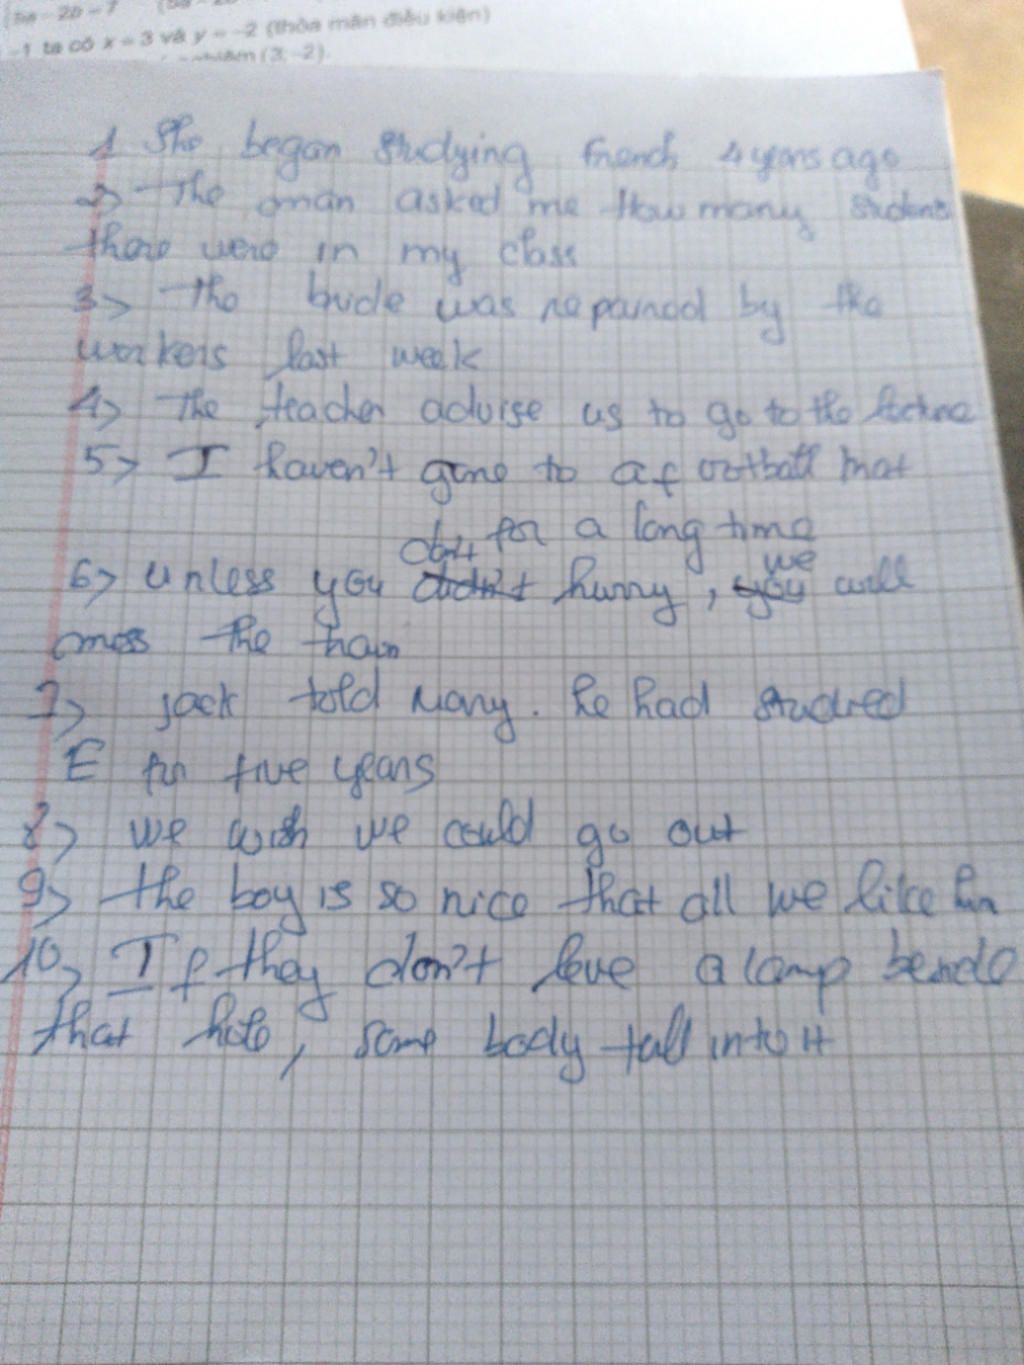 -1 ta có x = 3 và y = -2 (thỏa mãn điều kiện)
(3; -2).
1 She began studying french 4 years ago
2> The man asked me How many students
there were in my class
3> The was repaired by the
workers last week
4> The teacher advise us to go to the
5> I haven't gone to a football mat
for a long time
6> unless you hurry, we will
miss the train
7> jack told Mary. he had studied
E for five years
8> we wish we could go out
9> the boy is so nice that all we like him
10> If they don't leve a lamp beside
that hole, some body fall into it